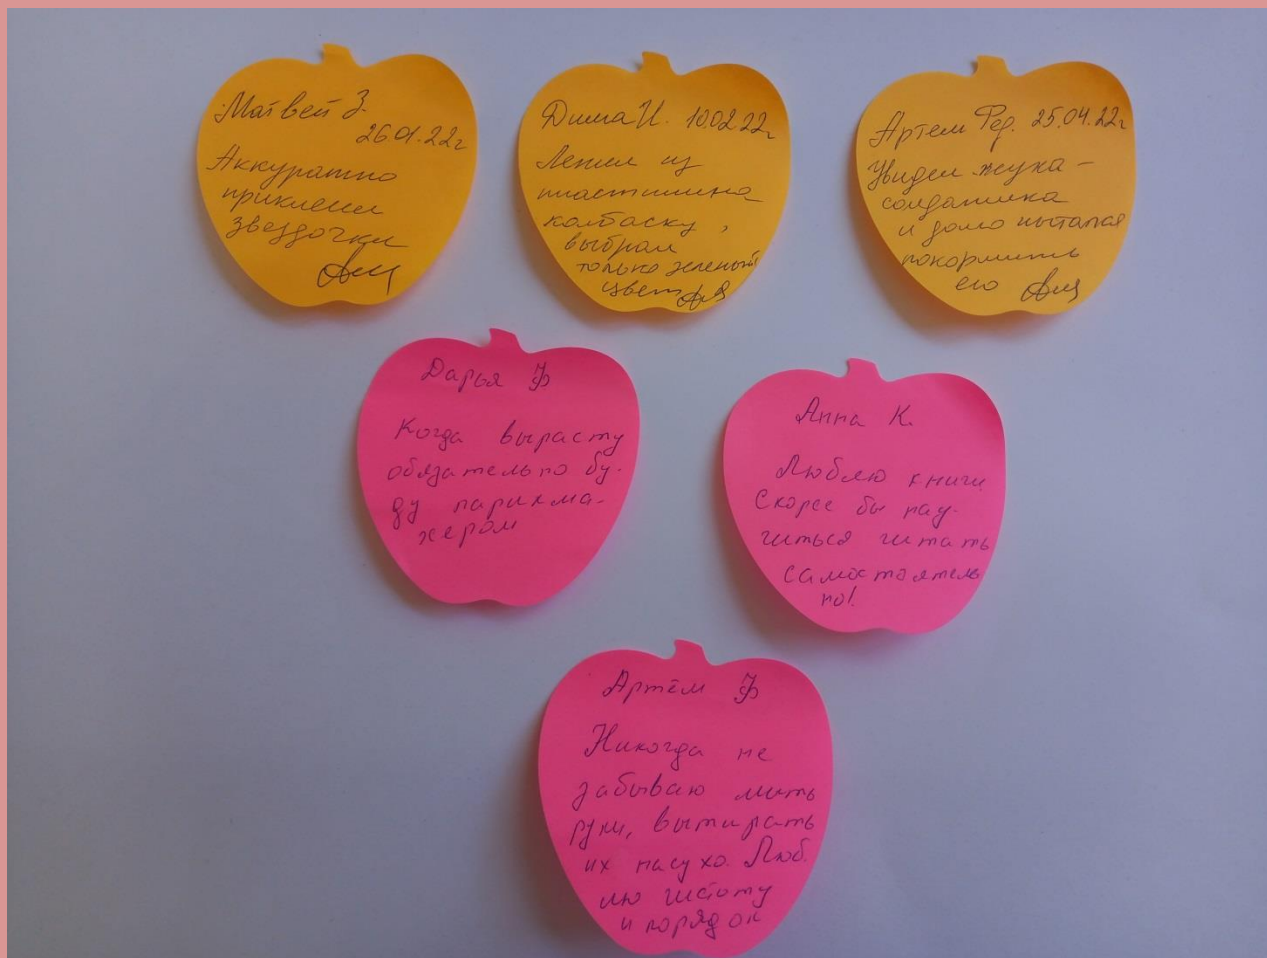 Матвей З.
26.01.22г
Аккуратно
приклеил
звездочки
Дима И. 10.02.22г
Лепил из
пластилина
колбаску,
выбрал
только зеленый
цвет
Артем Фед. 25.04.22г
Увидел жука-
солдатика
и долго пытался
покормить
его
Дарья Ф
Когда вырасту
обязательно бу-
ду парикма-
хером
Анна К.
Люблю книги
Скорее бы нау-
читься читать
самостоятель
но!
Артём Ф
Никогда не
забываю мыть
руки, вытирать
их насухо. Люб
лю чистоту
и порядок